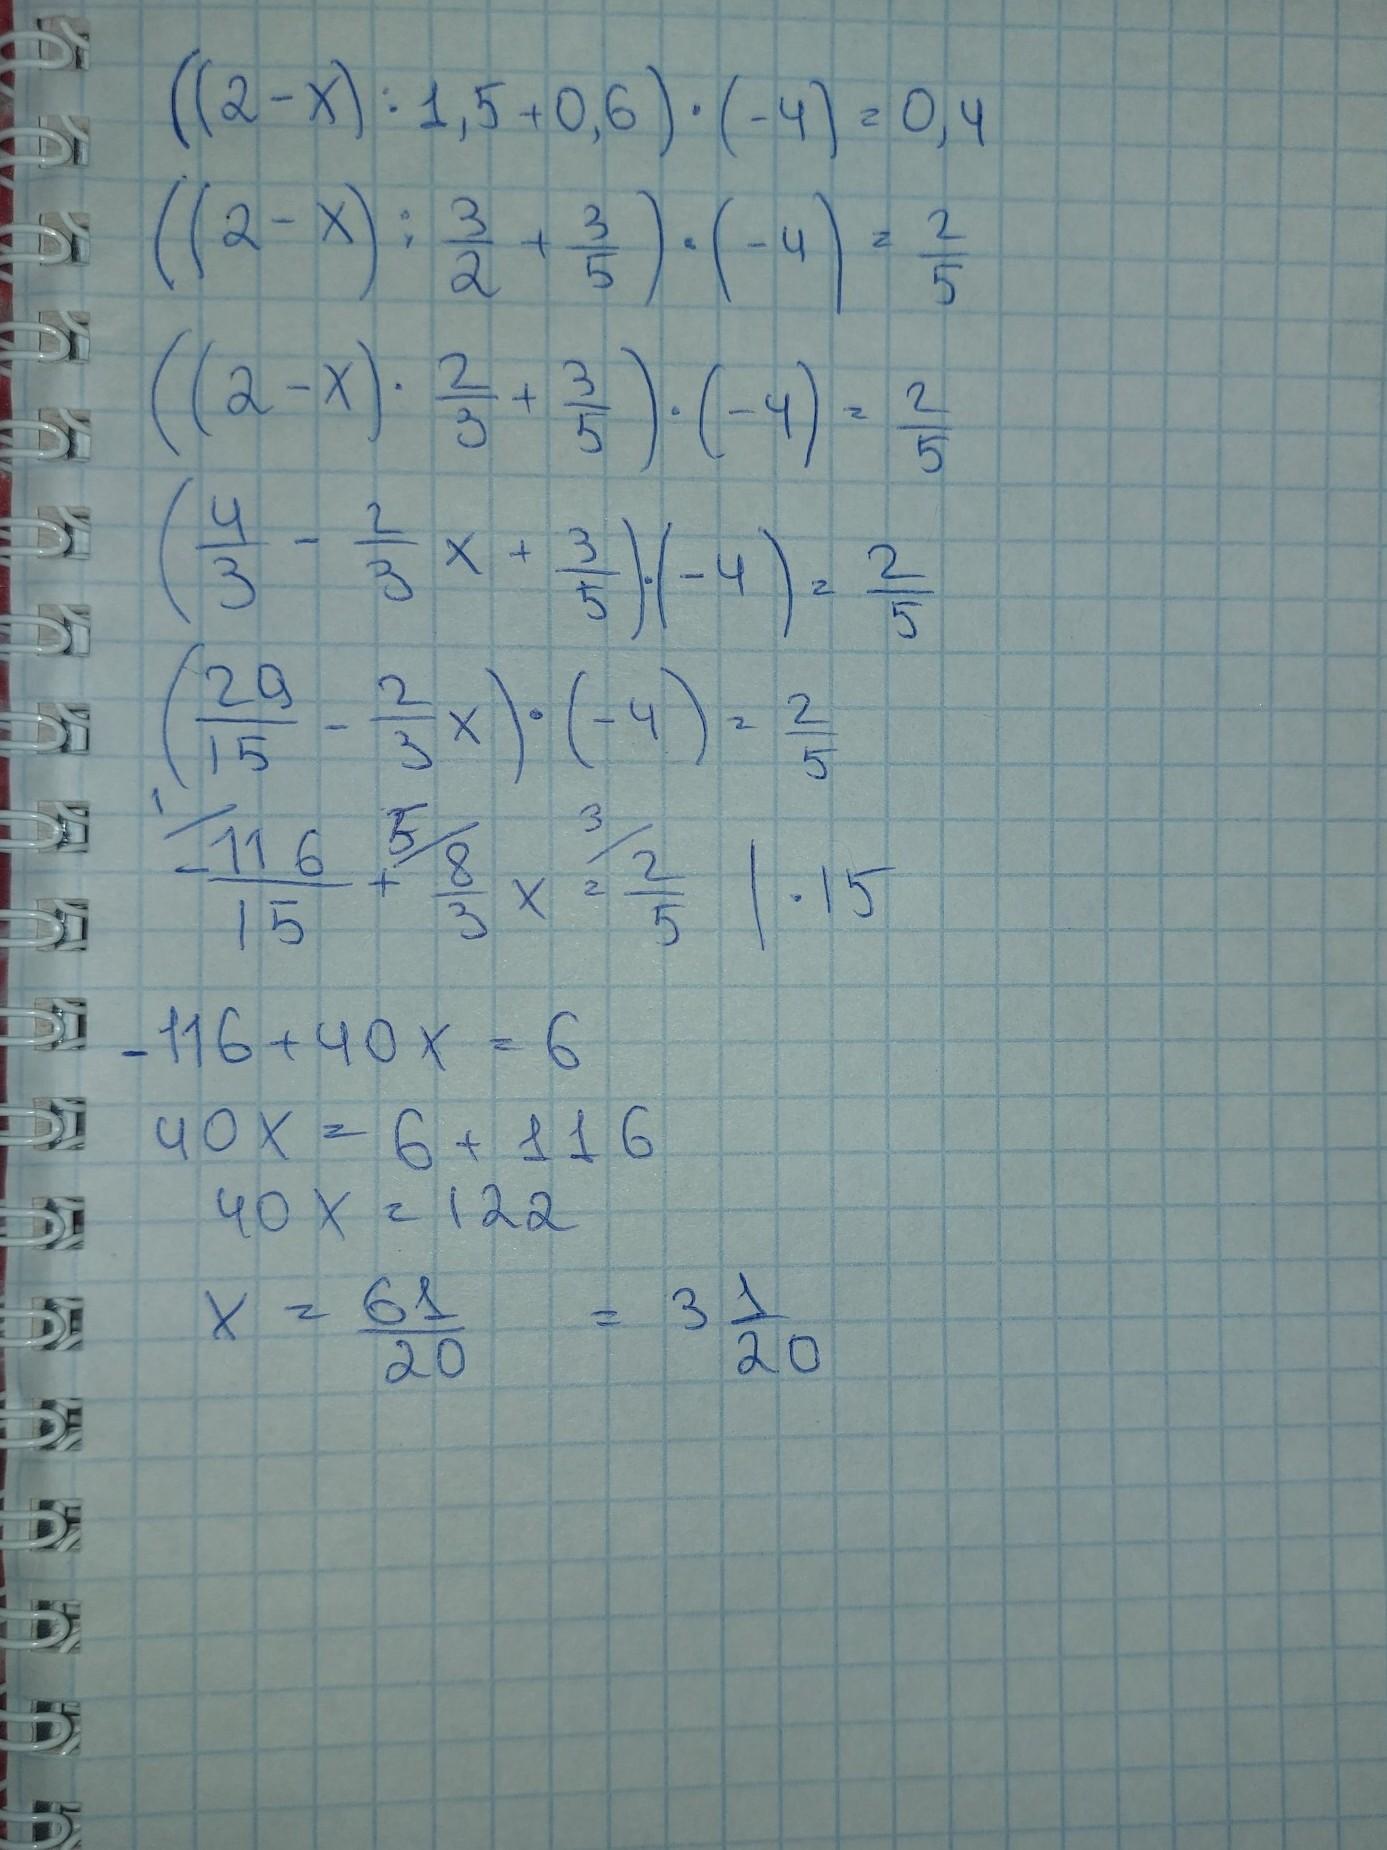 ((2-x):1,5+0,6)·(-4)=0,4
((2-x):3/2+3/5)·(-4)=2/5
((2-x)·2/3+3/5)·(-4)=2/5
(4/3-2/3x+3/5)·(-4)=2/5
(29/15-2/3x)·(-4)=2/5
1/ -116/15+ 5/ 8/3x= 3/ 2/5 |·15
-116+40x=6
40x=6+116
40x=122
x=61/20 =3 1/20